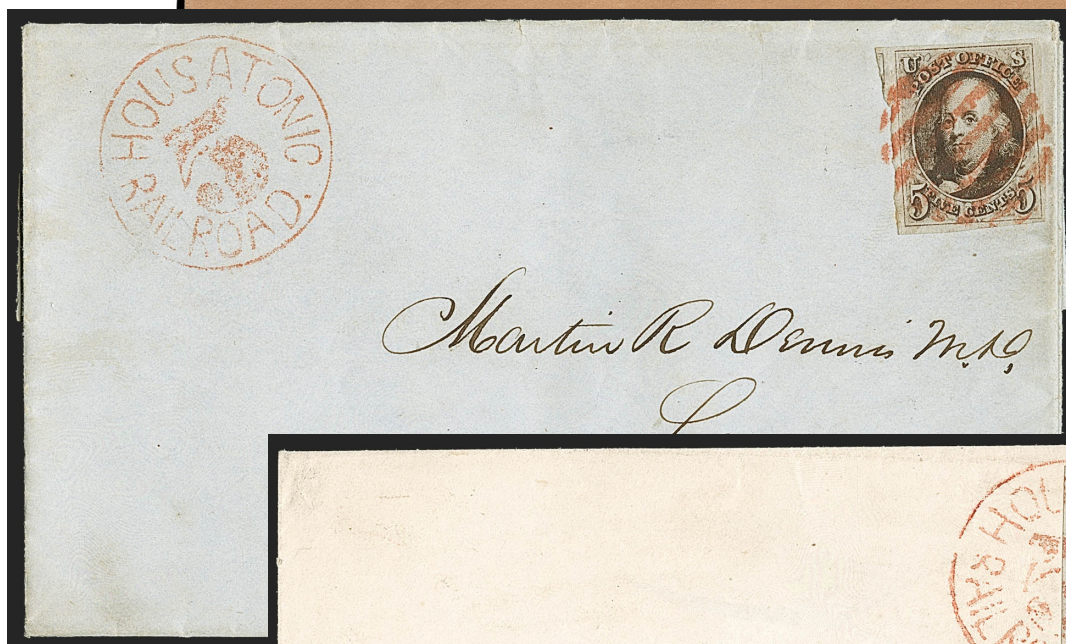 HOUSATONIC
RAILROAD.
U S
POST OFFICE
FIVE CENTS
5 5
Martin R Dennis M.D,